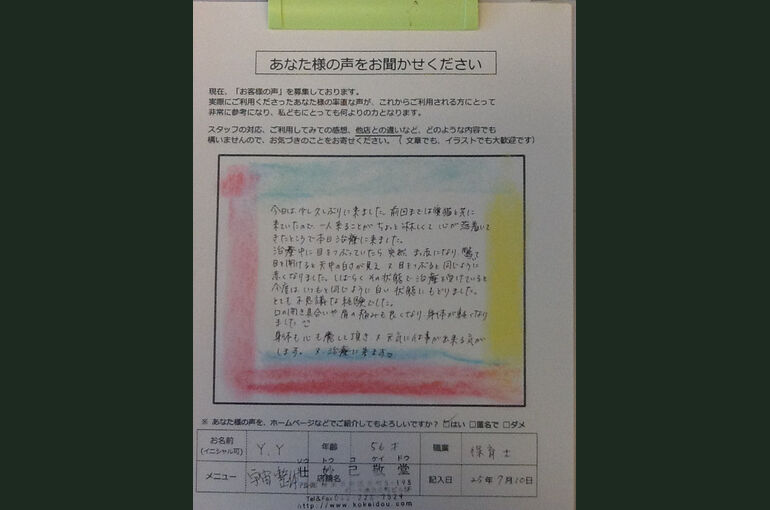 あなた様の声をお聞かせください
現在、「お客様の声」を募集しております。
実際にご利用くださったあなた様の率直な声が、これからご利用される方にとって
非常に参考になり、私どもにとっても何よりの力となります。
スタッフの対応、ご利用してみての感想、他店との違いなど、どのような内容でも
構いませんので、お気づきのことをお寄せください。（ 文章でも、イラストでも大歓迎です）
今日は少し久しぶりに来ました。前回までは
来ていたので、一人で来ることがちょっと淋しくて 心が落着いて
きたところで本日治療に来ました。
治療中に目をつぶっていたら突然 まっ赤になり、驚いて
目を開けると天井の白さが見え 又目をつぶると同じように
赤くなりました。しばらく その状態で治療を受けていると
今度は いつもと同じように白い状態にもどりました。
とても不思議な経験でした。
口の開き具合いや肩の痛みも良くなり 身体が軽くなり
ました
身体も心も癒して頂き 又元気に仕事が出来る気が
します。 又、治療に来ます。
※ あなた様の声を、ホームページなどでご紹介してもよろしいですか？ ☑はい □匿名で □ダメ
お名前
(イニシャル可) Y.Y 年齢 56才 職業 保育士
ソウ トウ コ ケイ ドウ
メニュー 宇宙整体 店舗名 壮妙己敬堂 記入日 25年9月10日
Tel&Fax
http://www.kokeidou.com